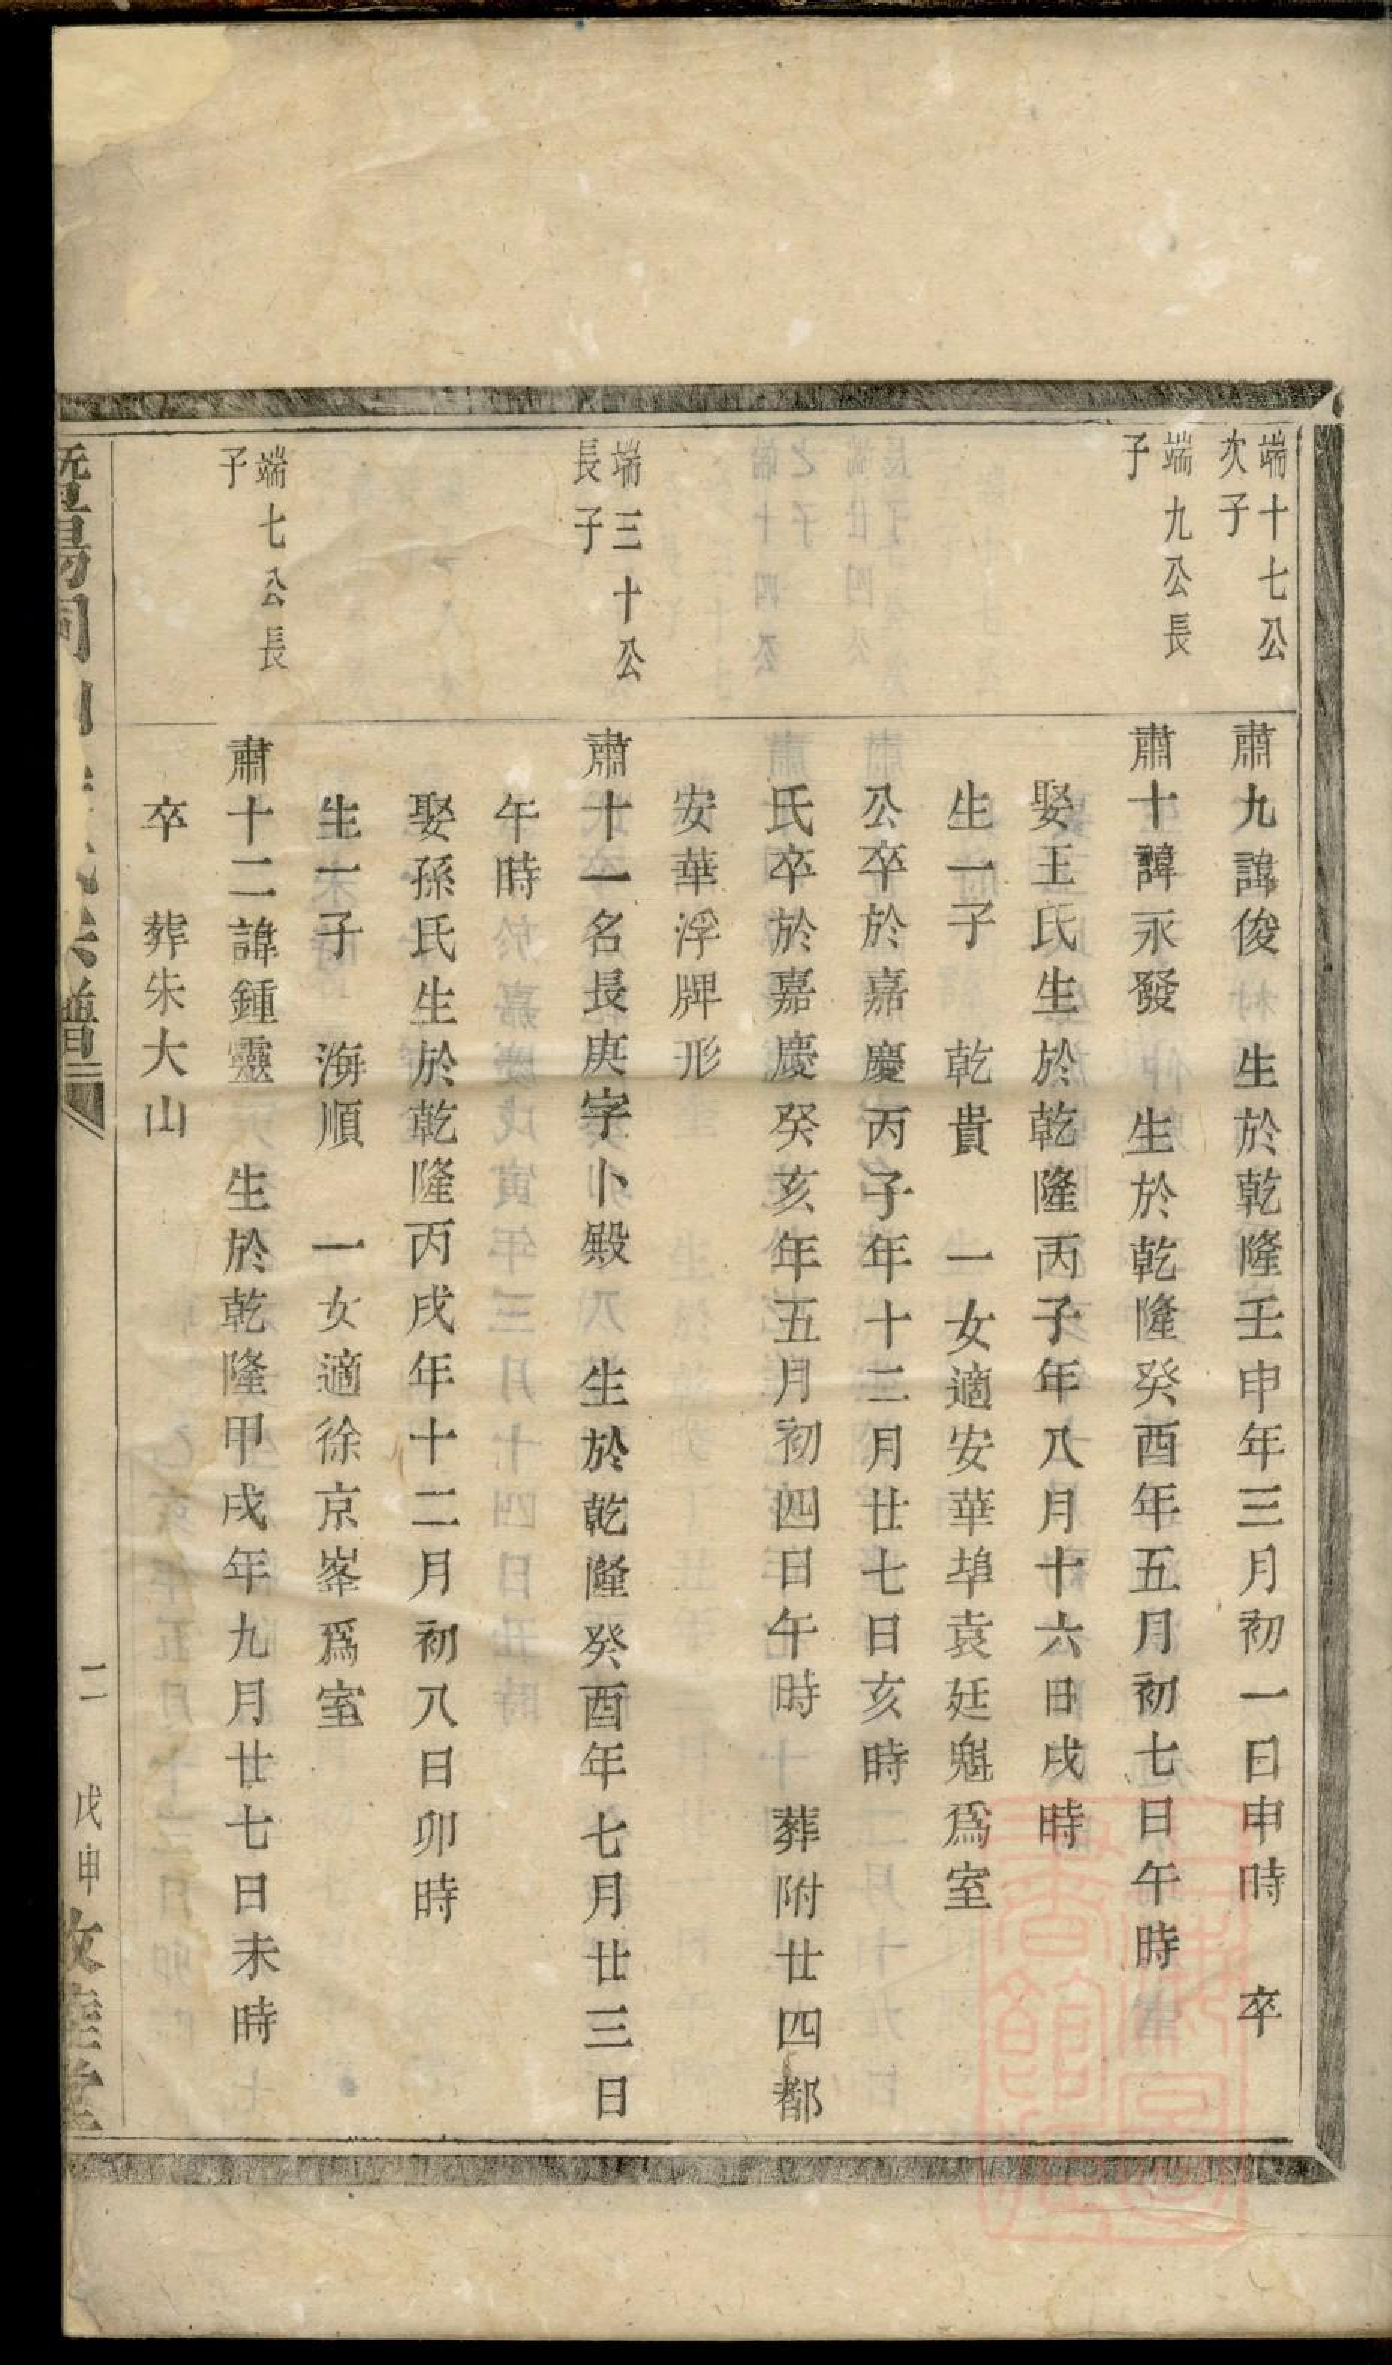 端十七公
次子
肅九諱俊　生於乾隆壬申年三月初一日申時　卒
端九公長
子
肅十諱永發　生於乾隆癸酉年五月初七日午時
娶王氏生於乾隆丙子年八月十六日戌時
生一子　乾貴　一女適安華埠袁廷魁爲室
公卒於嘉慶丙子年十二月廿七日亥時
氏卒於嘉慶癸亥年五月初四日午時　葬附廿四都
安華浮牌形
端三十公
長子
肅十一名長庚字小殿　生於乾隆癸酉年七月廿三日
午時
娶孫氏生於乾隆丙戌年十二月初八日卯時
生一子　海順　一女適徐京峯爲室
端七公長
子
肅十二諱鍾靈　生於乾隆甲戌年九月廿七日未時
卒　葬朱大山
二　戊申